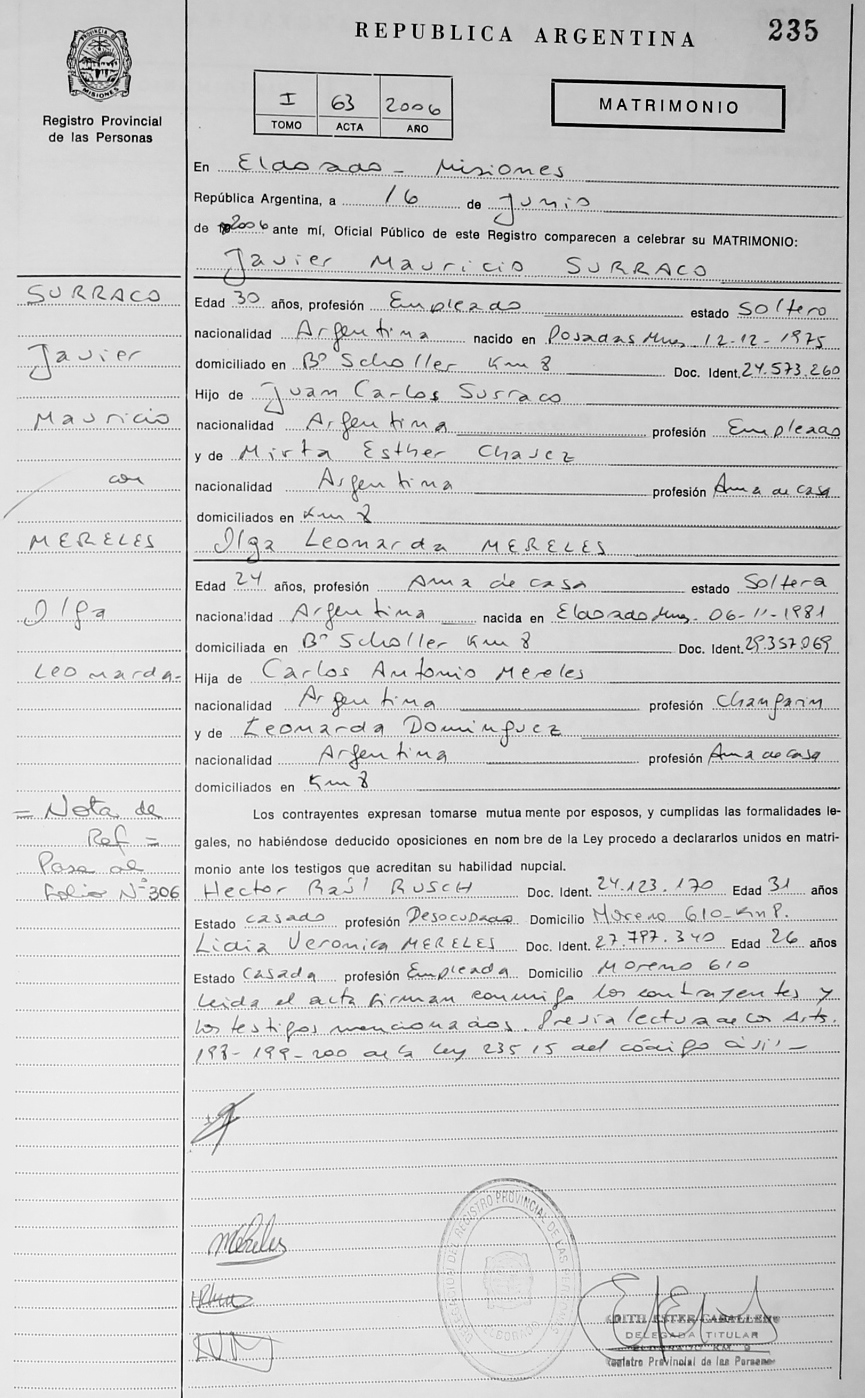 REPUBLICA ARGENTINA
235
PROVINCIA DE MISIONES
Registro Provincial
de las Personas
I 63 2006
TOMO ACTA AÑO
MATRIMONIO
En Eldorado - Misiones
República Argentina, a 16 de Junio
de 2006 ante mí, Oficial Público de este Registro comparecen a celebrar su MATRIMONIO:
Javier Mauricio SURRACO
SURRACO
Javier
Mauricio
con
MERELES
Olga
Leonarda-
= Nota de
Ref =
Pasa al
Folio Nº 306
Edad 30 años, profesión Empleado estado Soltero
nacionalidad Argentina nacido en Posadas Mnes. 12-12-1975
domiciliado en Bº Scholler Km 8 Doc. Ident. 24.573.260
Hijo de Juan Carlos Surraco
nacionalidad Argentina profesión Empleado
y de Mirta Esther Chavez
nacionalidad Argentina profesión Ama de casa
domiciliados en Km 8
Olga Leonarda MERELES
Edad 24 años, profesión Ama de casa estado Soltera
nacionalidad Argentina nacida en Eldorado Mnes. 06-11-1981
domiciliada en Bº Scholler Km 8 Doc. Ident. 29.357.069
Hija de Carlos Antonio Mereles
nacionalidad Argentina profesión Changarin
y de Leonarda Dominguez
nacionalidad Argentina profesión Ama de casa
domiciliados en Km 8
Los contrayentes expresan tomarse mutua mente por esposos, y cumplidas las formalidades le-
gales, no habiéndose deducido oposiciones en nom bre de la Ley procedo a declararlos unidos en matri-
monio ante los testigos que acreditan su habilidad nupcial.
Hector Raúl RUSCH Doc. Ident. 24.123.170 Edad 31 años
Estado casado profesión Desocupado Domicilio Moreno 610-
Lidia Veronica MERELES Doc. Ident. 27.797.340 Edad 26 años
Estado Casada profesión Empleada Domicilio Moreno 610
Leida el acta firman conmigo los contrayentes y
los testigos mencionados. Previa lectura de los Arts.
198-199-200 de la Ley 23515 del código civil-
Mereles
DELEGACION DEL REGISTRO PROVINCIAL DE LAS PERSONAS
ELDORADO
EDITH ESTER CABALLERO
DELEGADA TITULAR
Registro Provincial de las Personas